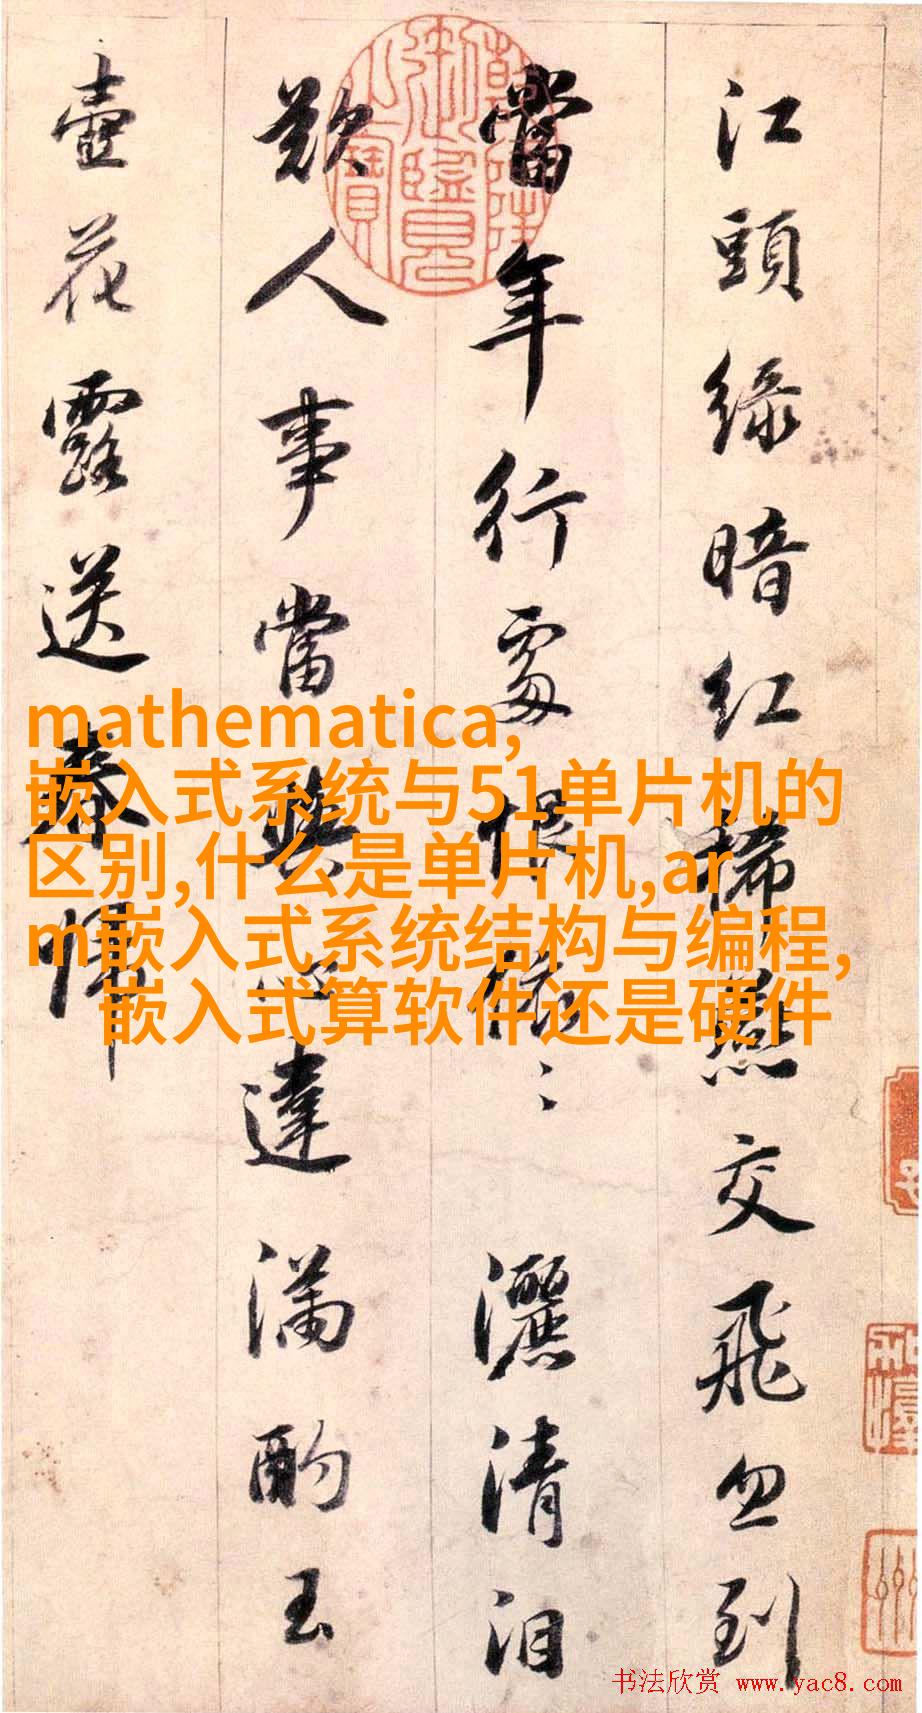 江頭綠暗紅稀燕交飛忽到
當年行處恨依〻灑清泪
歎人事當與心違滿酌玉
壺花露送春歸
乾隆御覽之寶
mathematica,
嵌入式系统与51单片机的
区别,什么是单片机,ar
m嵌入式系统结构与编程,
嵌入式算软件还是硬件
书法欣赏 www.yac8.com